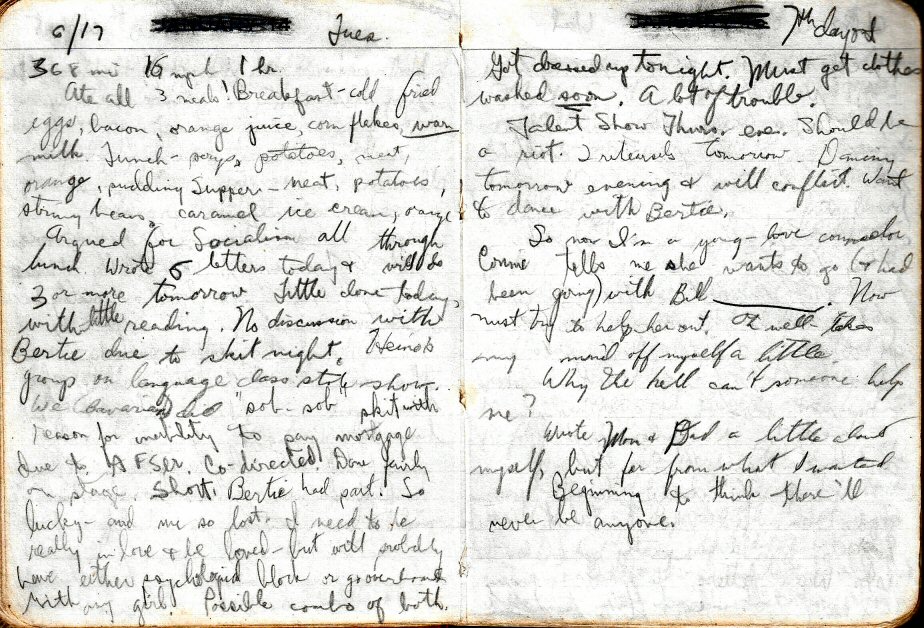 6/17 Tues.
368 mi 16 mph 1 hr.
Ate all 3 meals! Breakfast - cold fried
eggs, bacon, orange juice, corn flakes, warm
milk. Lunch - soup, potatoes, meat,
orange, pudding Supper - meat, potatoes,
string beans, caramel ice cream, orange
Argued for Socialism all through
lunch. Wrote 6 letters today & will do
3 or more tomorrow Little done today,
with little reading. No discussion with
Bertie due to skit night. Heinob
group on language class style show.
We (Bavarian) did "sob-sob" skit with
reason for inability to pay mortgage
due to AFSer. Co-directed! Done fairly
on stage. Short. Bertie had part. So
lucky - and me so lost. I need to be
really in love & be loved - but will probably
have either psychological block or go overboard
with any girl. Possible combo of both.
7th day out
Got dressed up tonight. Must get clothes
washed soon. A lot of trouble.
Talent Show Thurs. eve. Should be
a riot. 2 rehersals tomorrow. Dancing
tomorrow evening & will conflict. Want
to dance with Bertie.
So now I'm a young-love counselor
Connie tells me she wants to go (& had
been going) with Bill. Now
must try to help her out. Oh well - takes
my mind off myself a little.
Why the hell can't someone help
me?
Wrote Mom & Dad a little about
myself, but far from what I wanted
Beginning to think there'll
never be anyone.